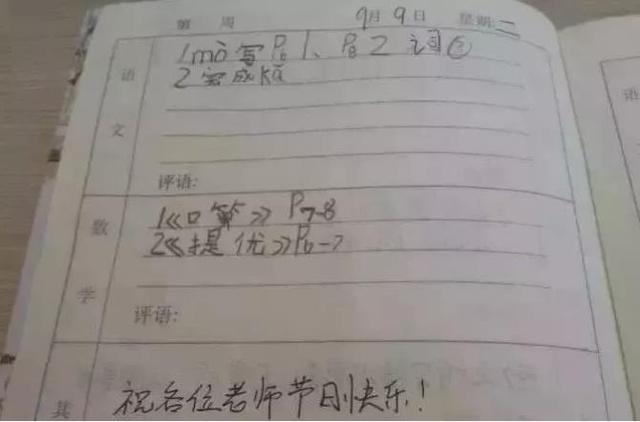 第 周 9月9日 星期:二
语文
1mò写P6 1、P8 2 词②
2完成kǎ
评语:
数学
1《口算》P7-8
2《提优》P6-7
评语:
其
祝各位老师节日快乐!
语